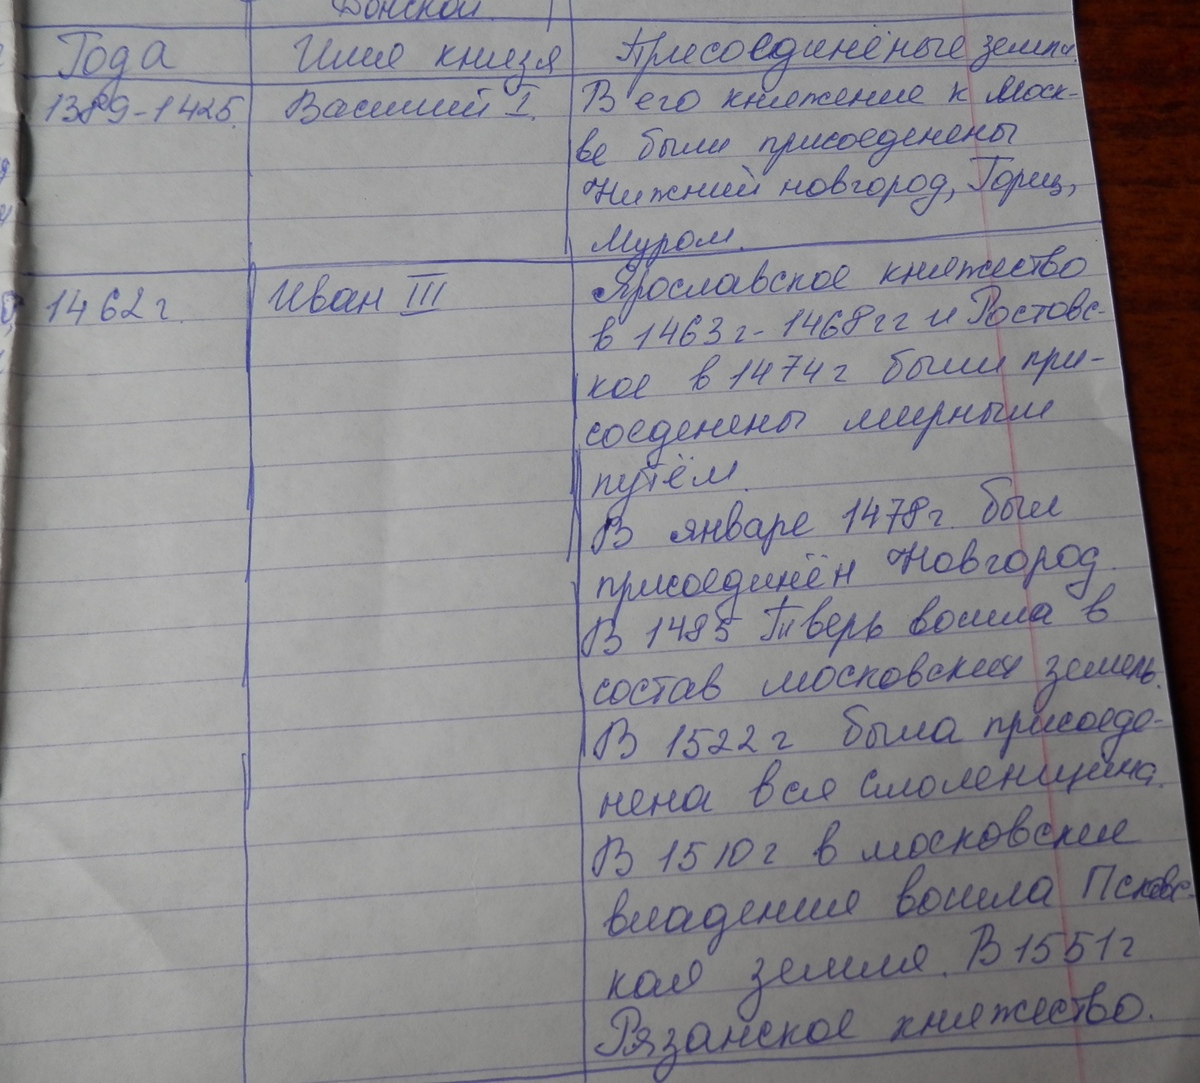 Донской
Года Имя князя Присоединёные земли
1389-1425. Василий I. В его княжение к Моск-
ве были присоеденены
Нижний новгород, Гориц,
Муром.
1462г. Иван III Ярославское княжество
в 1463г-1468гг и Ростовс-
кое в 1474г были при-
соеденены мирным
путём.
В январе 1478г. был
присоединён Новгород.
В 1485 Тверь вошла в
состав московских земель.
В 1522г была присоеде-
нена вся Смоленщина.
В 1510г в московские
владения вошла Псковс-
кая земля. В 1551г
Рязанское княжество.